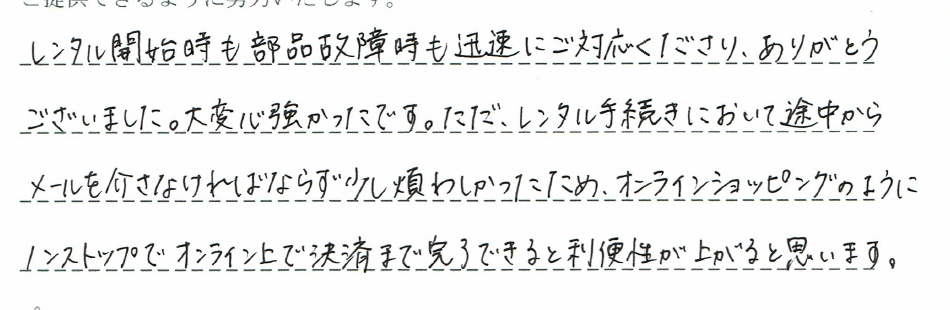 ご提供できるように努力いたします。
レンタル開始時も部品故障時も迅速にご対応くださり、ありがとう
ございました。大変心強かったです。ただ、レンタル手続きにおいて途中から
メールを介さなければならず少し煩わしかったため、オンラインショッピングのように
ノンストップでオンライン上で決済まで完了できると利便性が上がると思います。